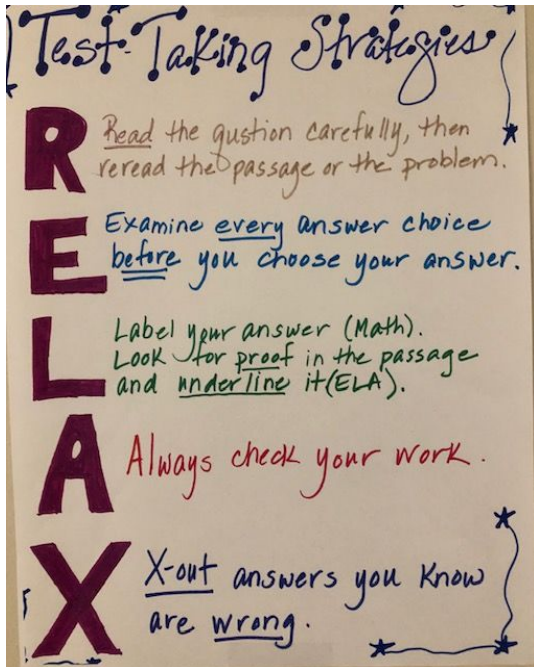 Test-Taking Strategies
R Read the qustion carefully, then
reread the passage or the problem.
E Examine every answer choice
before you choose your answer.
L Label your answer (Math).
Look for proof in the passage
and underline it (ELA).
A Always check your work.
X X-out answers you know
are wrong.